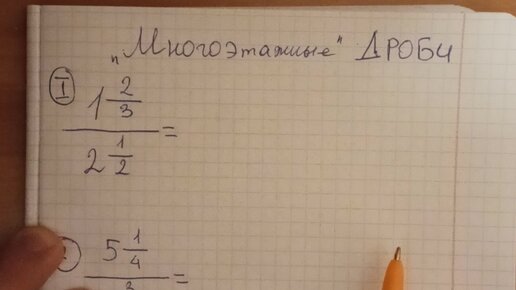 „Многоэтажные" ДРОБИ
I
1 2/3
2 1/2 =
5 1/4
=